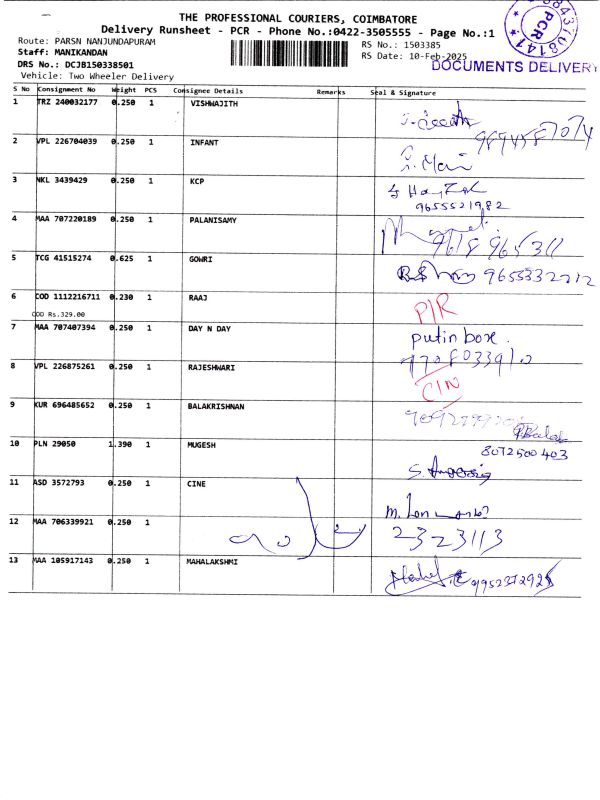 THE PROFESSIONAL COURIERS, COIMBATORE
Delivery Runsheet - PCR - Phone No.:0422-3505555 - Page No.:1
Route: PARSN NANJUNDAPURAM
RS No.: 1503385
Staff: MANIKANDAN
RS Date: 10-Feb-2025
DRS No.: DCJB150338501
DOCUMENTS DELIVERY
PCR
Vehicle: Two Wheeler Delivery
S No Consignment No Weight PCS Consignee Details Remarks Seal & Signature
1 TRZ 240032177 0.250 1 VISHWAJITH
2 VPL 226704039 0.250 1 INFANT
3 NKL 3439429 0.250 1 KCP
9655521982
4 MAA 707220189 0.250 1 PALANISAMY
9618 965311
5 TCG 41515274 0.625 1 GOWRI
9655332212
6 COD 1112216711 0.230 1 RAAJ
COD Rs.329.00
P/R
7 MAA 707407394 0.250 1 DAY N DAY putin box.
8 VPL 226875261 0.250 1 RAJESHWARI
C/N
9 KUR 696485652 0.250 1 BALAKRISHNAN
10 PLN 29050 1.390 1 MUGESH 8072500403
11 ASD 3572793 0.250 1 CINE
12 MAA 706339921 0.250 1 2323113
13 MAA 105917143 0.250 1 MAHALAKSHMI